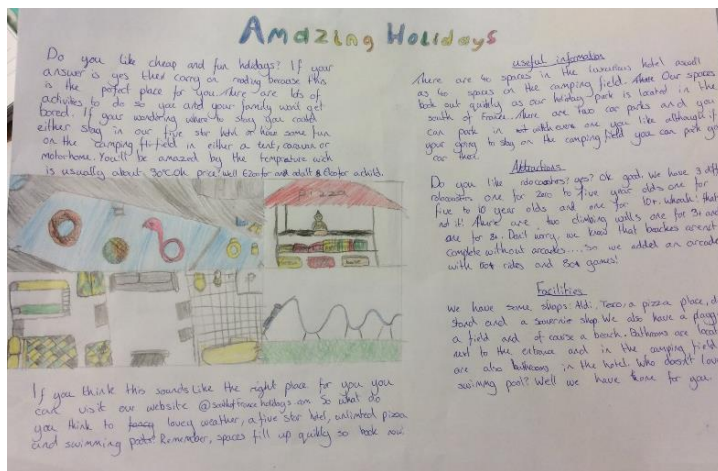 Amazing Holidays
Do you like cheap and fun holidays? If your
answer is yes then carry on reading because this
is the perfect place for you. There are lots of
activites to do so you and your family wont get
bored. If your wondering where to stay you could
either stay in our five star hotel or have some fun
on the camping field in either a tent, caravan or
motorhome. You'll be amazed by the temperature wich
is usually about 30°C. Oh price well £20 for and adult & £10 for a child.
Pizza
If you think this sounds like the right place for you you
can visit our website @southoffranceholidays.com So what do
you think to lovey weather, a five star hotel, unlimited pizza
and swimming pools? Remember, spaces fill up quikly so book now
useful information
There are 40 spaces in the luxurious hotel aswell
as 40 spaces on the camping field. Our spaces
book out quikly as our holiday park is located in the
south of France. There are two car parks and you
can park in witch ever one you like although if
your going to stay on the camping field you can park your
car there.
Attractions
Do you like rolercoasters? yes? Ok good. We have 3 diff
rolercoasters one for zero to five year olds one for
five to 10 year olds and one for 10+. Whoah! that
not it! There are two climbing walls one for 3+ and
one for 8+. Don't worry, we know that beaches arent
complete without arcades.....So we added an arcade
with 50+ rides and 80+ games!
Facilities
We have some shops: Aldi, Tesco, a pizza place, d
stand and a souvenie shop. We also have a playg
a field and of course a beach. Bathrooms are loca
next to the entrance and in the camping field
are also bathrooms in the hotel. Who doesn't love
swimmg pool? Well we have some for you.